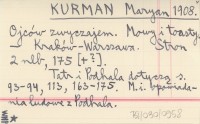 KURMAN Maryan 1908.
Ojców zwyczajem. Mowy i toasty.
Kraków-Warszawa. Stron
2 nlb, 175 [+?].
Tatr i Podhala dotyczą s.
93-94, 113, 163-175. M.i. opowiada-
nia ludowe z Podhala.